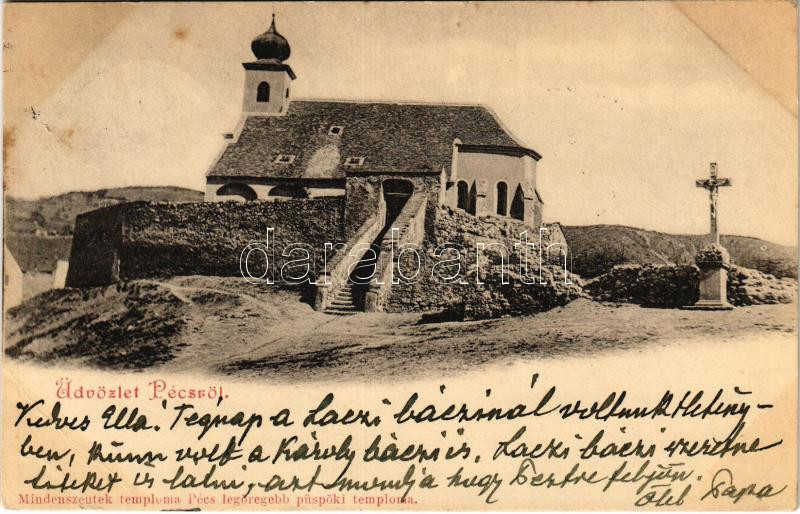 darabanth
Üdvözlet Pécsről.
Kedves Ella! Tegnap a Laczi báczinál voltunk Hetény-
ben, künn volt a Károly báczi is. Laczi báczi szeretne
titeket is látni, azt mondja hogy Pestre feljön.
Ölel Papa
Mindenszentek temploma Pécs legöregebb püspöki temploma.